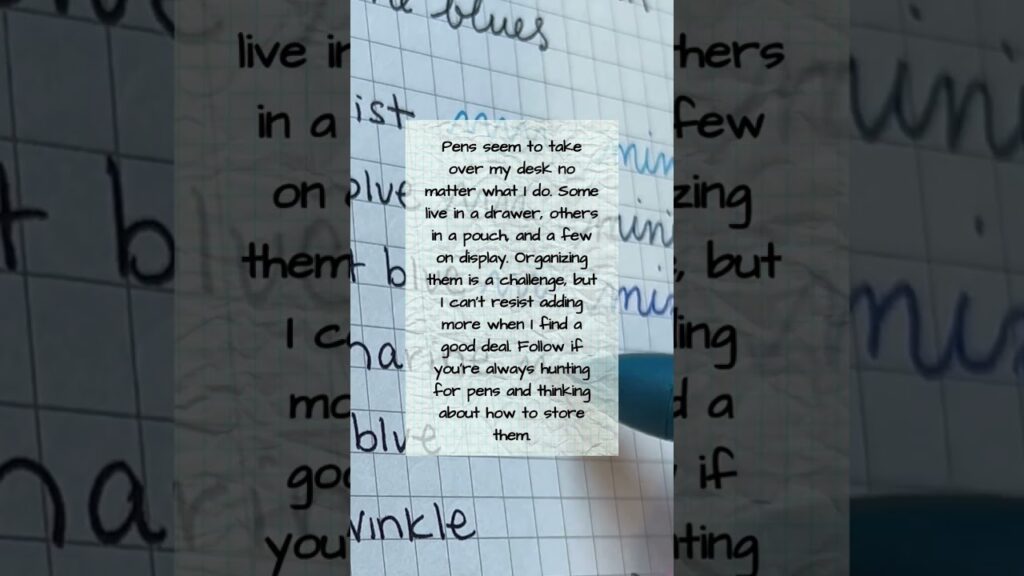 the blues
Pens seem to take
over my desk no
matter what I do. Some
live in a drawer, others
in a pouch, and a few
on display. Organizing
them is a challenge, but
I can't resist adding
more when I find a
good deal. Follow if
you're always hunting
for pens and thinking
about how to store
them.
blue
blue
blue
winkle